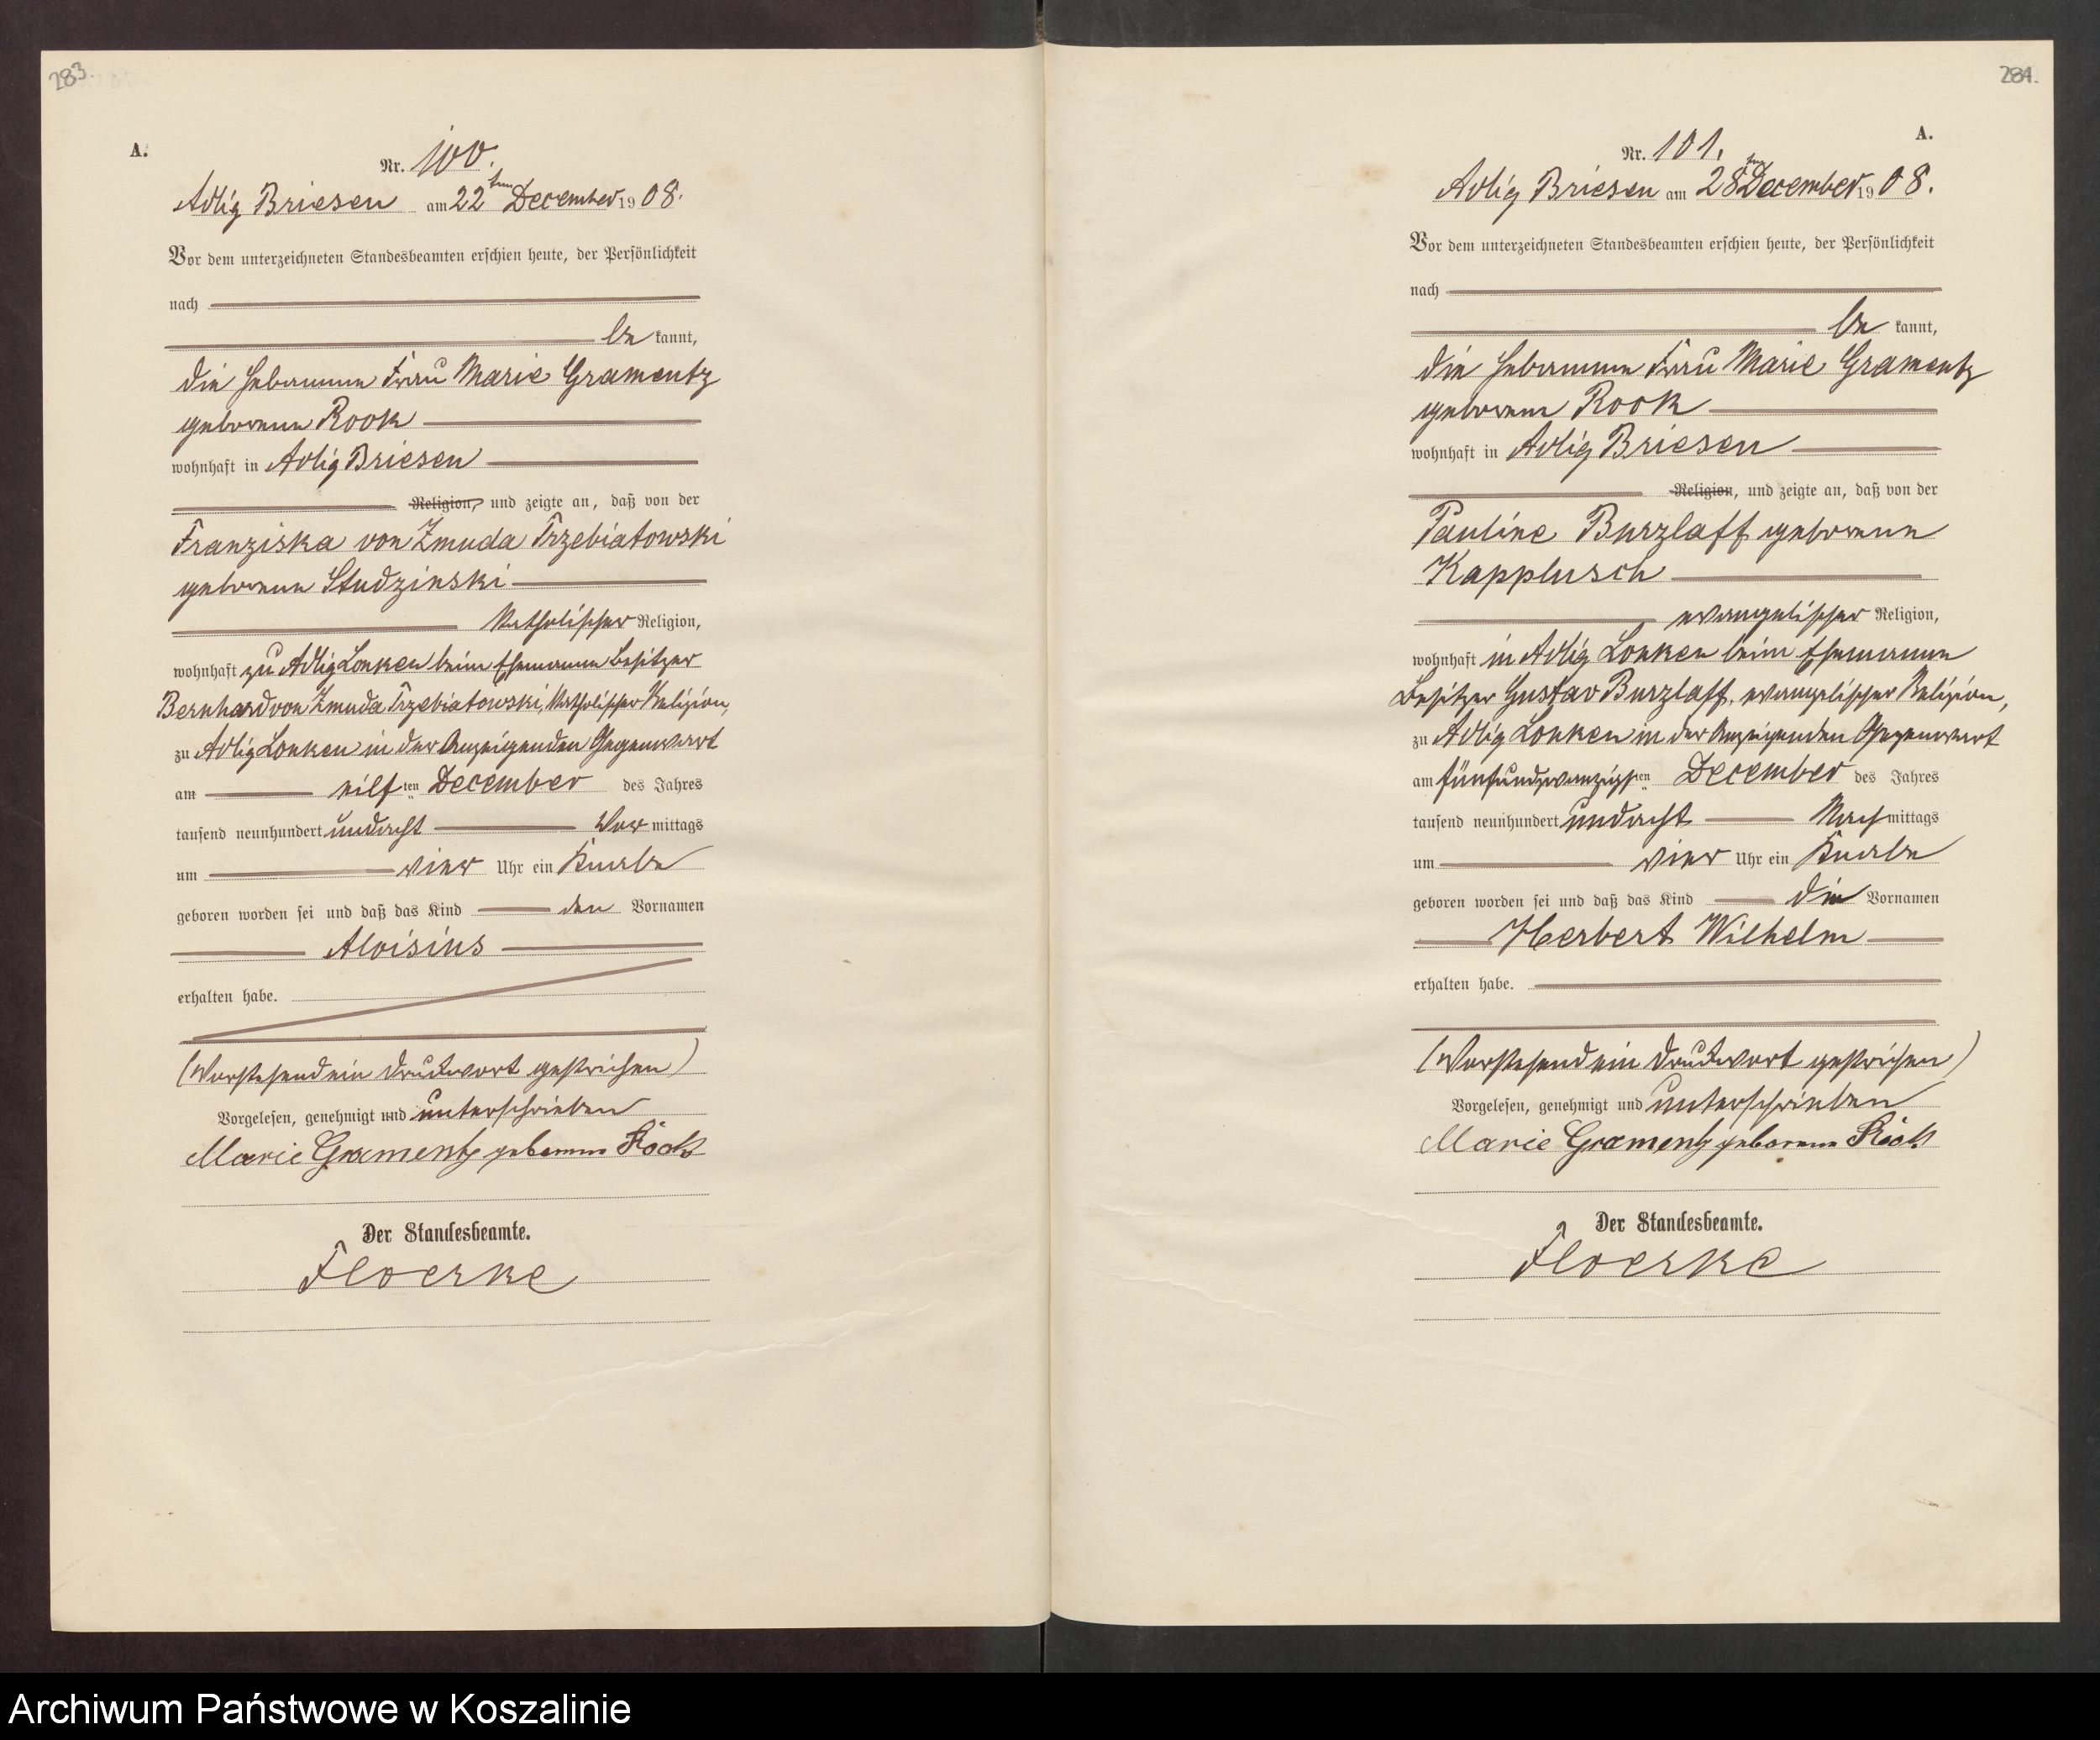 283.
A.
Nr. 100.
Adlig Briesen am 22ten December 1908.
Vor dem unterzeichneten Standesbeamten erschien heute, der Persönlichkeit
nach
be kannt,
die Hebamme Frau Marie Gramentz
geborene Rook
wohnhaft in Adlig Briesen
Religion, und zeigte an, daß von der
Franziska von Zmuda Trzebiatowski
geborene Studzinski
katholischer Religion,
wohnhaft zu Adlig Lonken beim Ehemanne Besitzer
Bernhard von Zmuda Trzebiatowski, katholischer Religion,
zu Adlig Lonken in der Anzeigenden Gegenwart
am eilf ten December des Jahres
tausend neunhundert undacht Vor mittags
um vier Uhr ein Knabe
geboren worden sei und daß das Kind den Vornamen
Aloisius
erhalten habe.
(Vorstehend ein Druckwort gestrichen)
Vorgelesen, genehmigt und unterschrieben
Marie Gramentz geborene Röck
Der Standesbeamte.
Floerke
284.
A.
Nr. 101.
Adlig Briesen am 28ten December 1908.
Vor dem unterzeichneten Standesbeamten erschien heute, der Persönlichkeit
nach
be kannt,
die Hebamme Frau Marie Gramentz
geborene Rook
wohnhaft in Adlig Briesen
Religion, und zeigte an, daß von der
Pauline Burzlaff geborene
Kapplusch
evangelischer Religion,
wohnhaft in Adlig Lonken beim Ehemanne
Besitzer Gustav Burzlaff, evangelischer Religion,
zu Adlig Lonken in der Anzeigenden Gegenwart
am fünfundzwanzigsten December des Jahres
tausend neunhundert undacht Nach mittags
um vier Uhr ein Knabe
geboren worden sei und daß das Kind die Vornamen
Herbert Wilhelm
erhalten habe.
(Vorstehend ein Druckwort gestrichen)
Vorgelesen, genehmigt und unterschrieben
Marie Gramentz geborene Röck
Der Standesbeamte.
Floerke
Archiwum Państwowe w Koszalinie